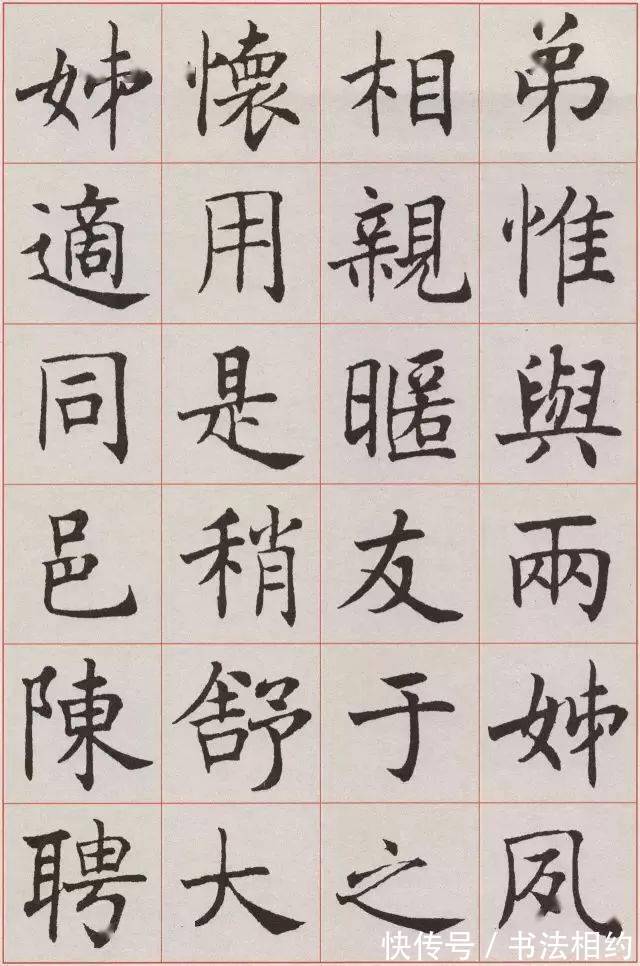 弟惟與兩姊夙
相親暱友于之
懷用是稍舒大
姊適同邑陳聘
快传号/书法相约